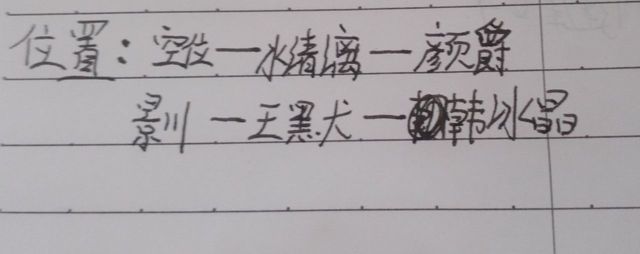 位置：空位一水清漓一颜爵
景川一王黑犬一韩冰晶